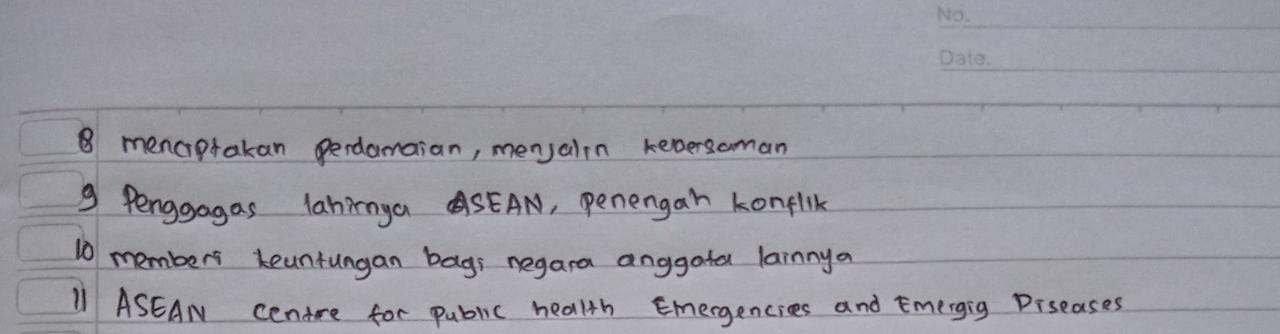 No.
Date.
8 menciptakan perdamaian, menjalin kebersaman
9 Penggagas lahirnya ASEAN, penengah konflik
10 memberi keuntungan bagi negara anggata lainnya
11 ASEAN centre for public health Emergencies and Emergig Diseases